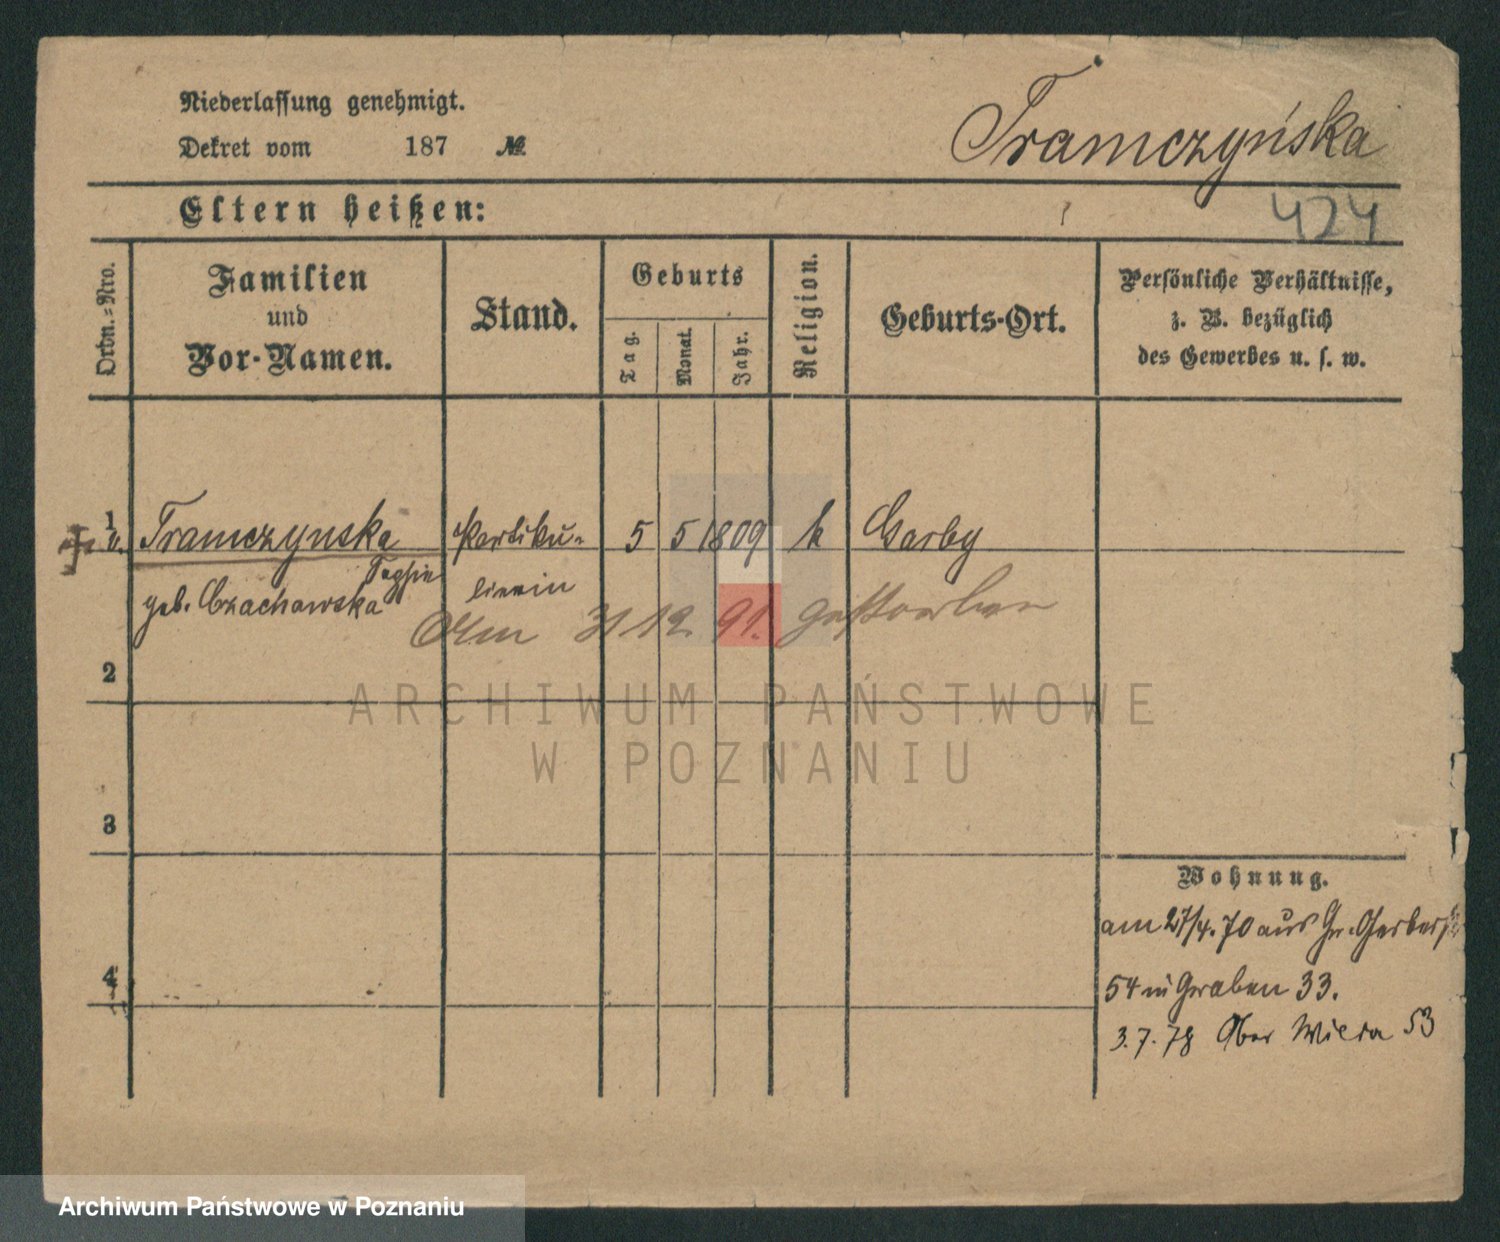 Niederlassung genehmigt.
Dekret vom 187 №
Tramczyńska
424
Eltern heißen:
Ordn.-Nro.
Familien
und
Vor-Namen.
Stand.
Geburts
Tag.
Monat.
Jahr.
Religion.
Geburts-Ort.
Persönliche Verhältnisse,
z. B. bezüglich
des Gewerbes u. s. w.
1 Tramczynska Partiku- 5 5 1809 k Garby
geb. Czachowska lierin
Am 31 12. 91. gestorben
2
ARCHIWUM PAŃSTWOWE
W POZNANIU
3
Wohnung.
am 27/4. 70 aus Gr. Gerberst
4
54 n Graben 33.
3. 7. 78 Ober Wilda 53
Archiwum Państwowe w Poznaniu